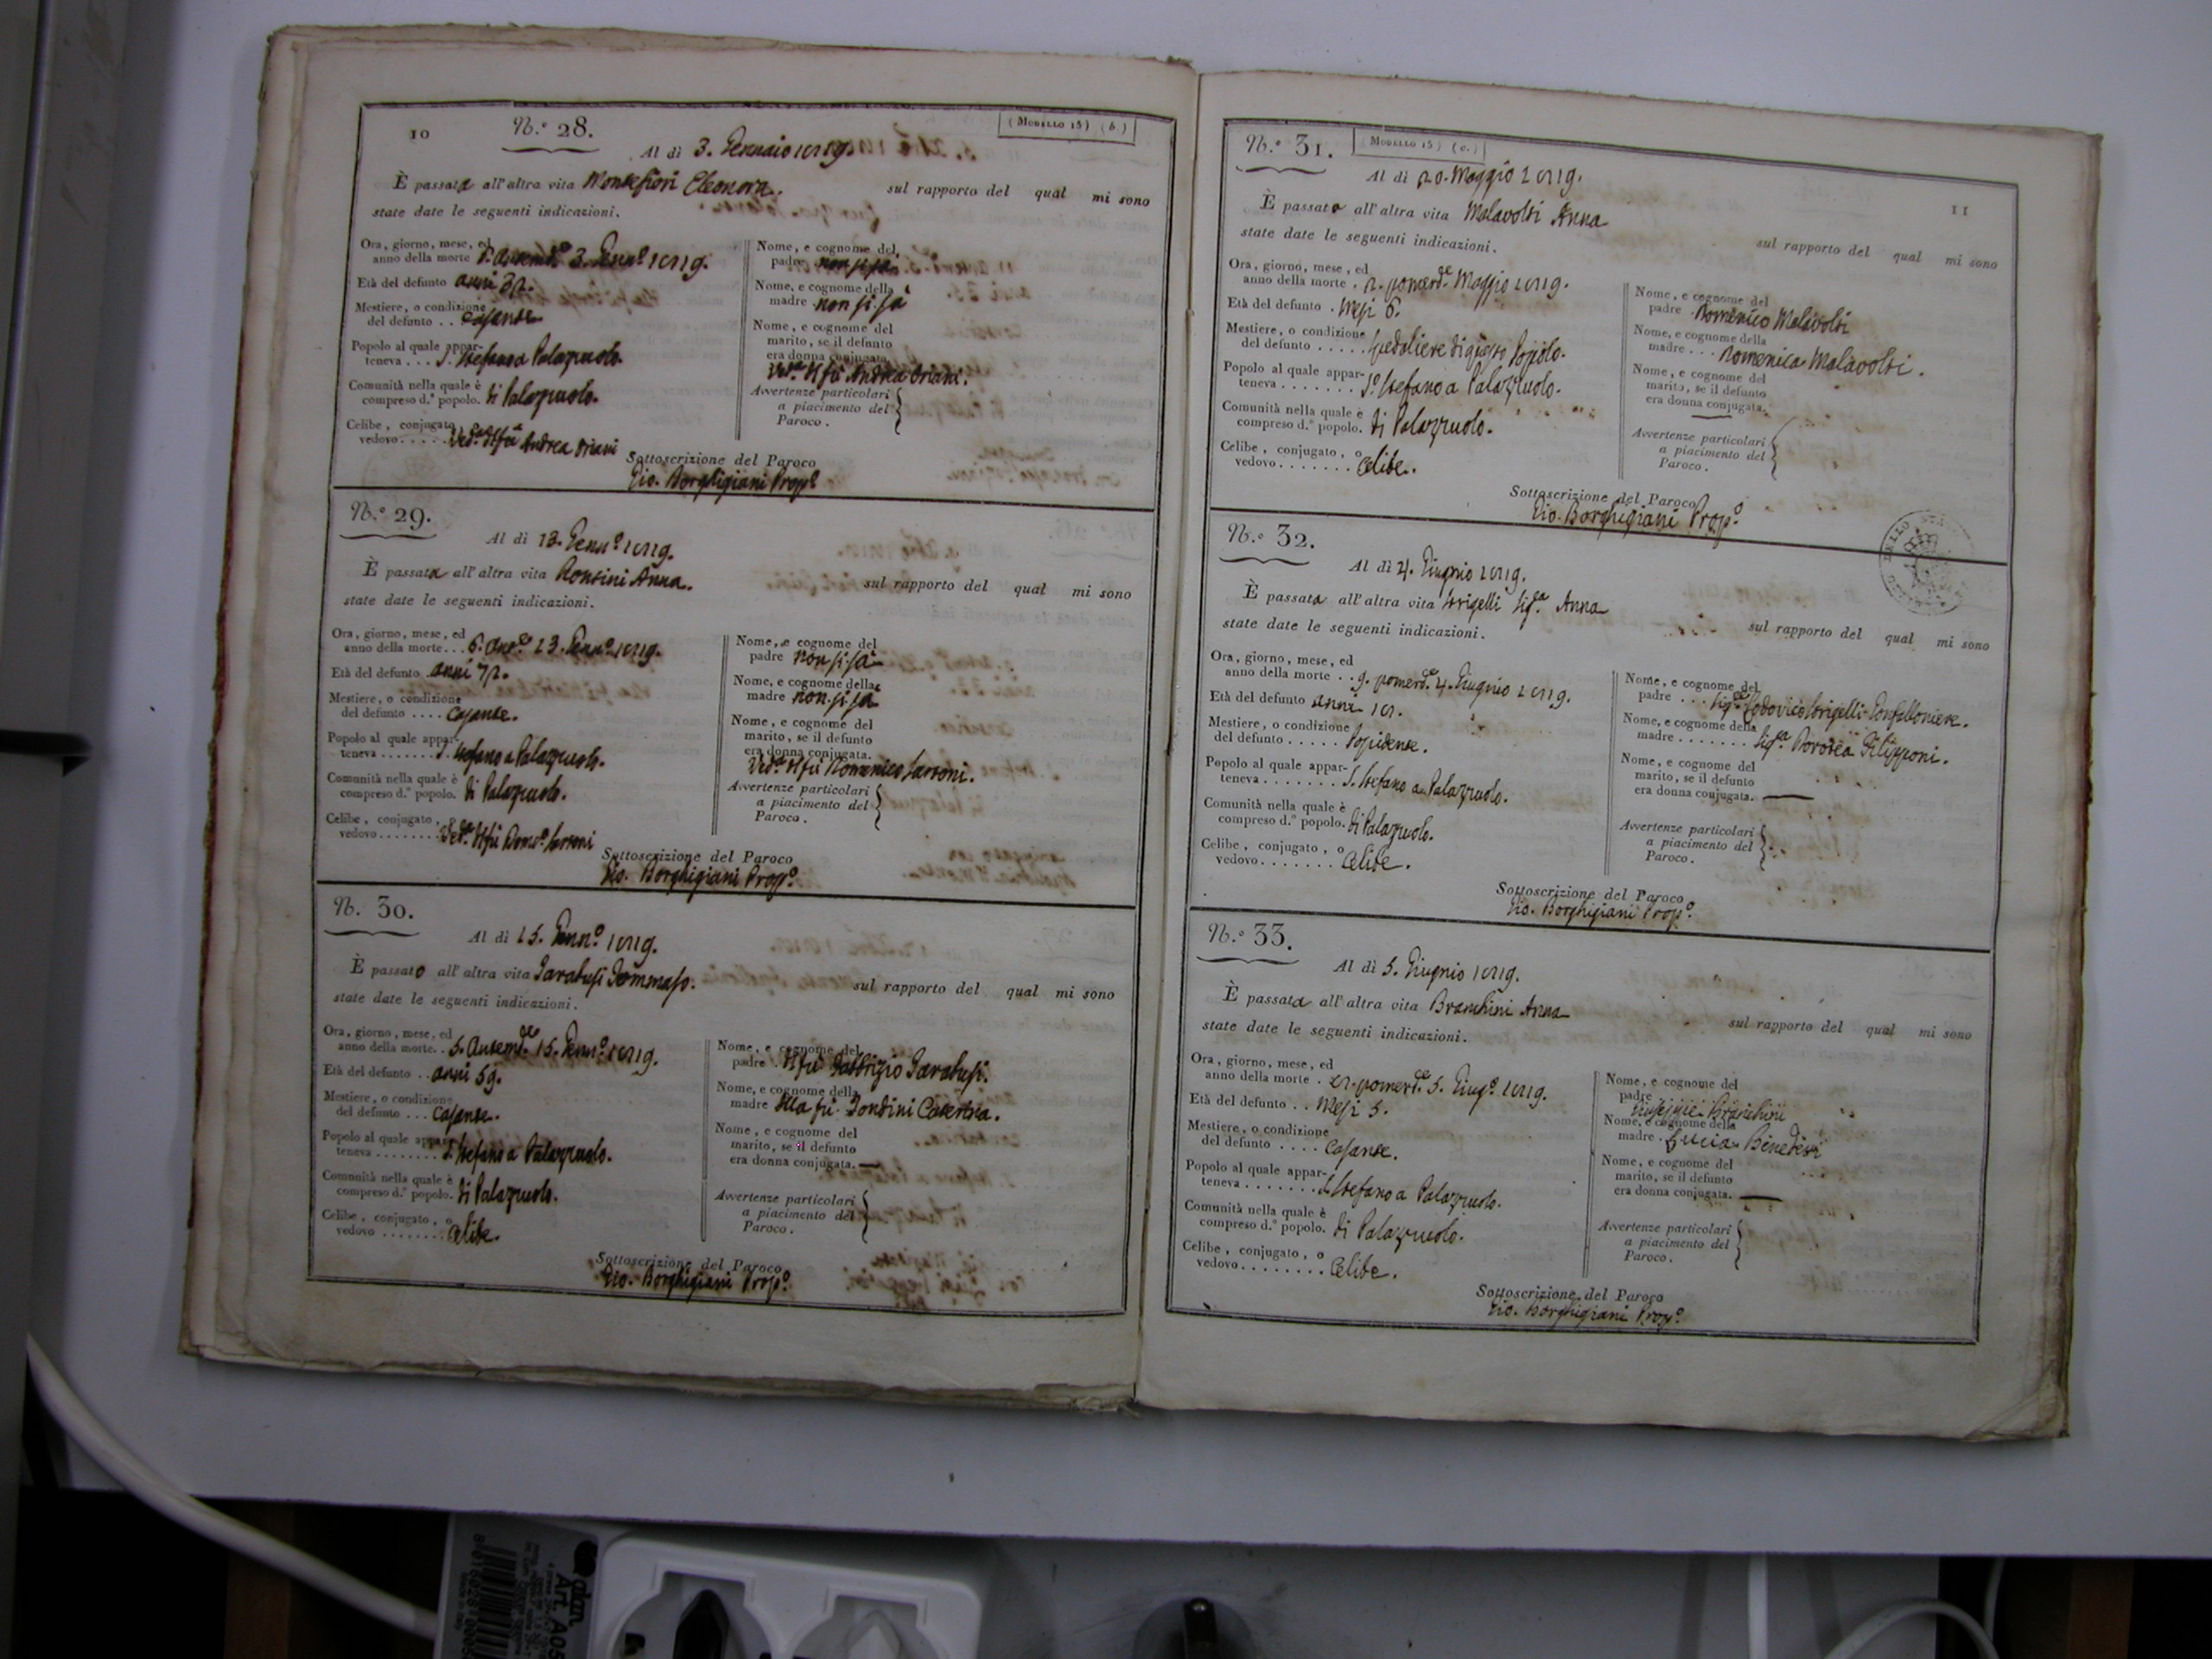 10
N.° 28.
(Modello 15) (b.)
Al dì 3. Gennaio 1819.
È passata all'altra vita Montefiori Eleonora. sul rapporto del qual mi sono
state date le seguenti indicazioni.
Ora, giorno, mese, ed
anno della morte 3. Genn.º 1819.
Età del defunto anni
Mestiere, o condizione
del defunto . . Casante
Popolo al quale appar-
teneva . . . S. Stefano a Palazzuolo.
Comunità nella quale è
compreso d.° popolo. di Palazzuolo.
Celibe, conjugato, o
vedovo . . . . . Ved.ª del fù Andrea Oriani
Nome, e cognome del
padre non si sà
Nome, e cognome della
madre non si sà
Nome, e cognome del
marito, se il defunto
era donna conjugata.
Ved.ª del fù Andrea Oriani.
Avvertenze particolari
a piacimento del
Paroco.
Sottoscrizione del Paroco
Gio. Borghigiani Prop.º
N.° 29.
Al dì 13. Genn.º 1819.
È passata all'altra vita Ronsini Anna. sul rapporto del qual mi sono
state date le seguenti indicazioni.
Ora, giorno, mese, ed
anno della morte . . . 6. 13. Genn.º 1819.
Età del defunto anni 72.
Mestiere, o condizione
del defunto . . . . Casante.
Popolo al quale appar-
teneva . . . . . . . S. Stefano a Palazzuolo.
Comunità nella quale è
compreso d.° popolo. di Palazzuolo.
Celibe, conjugato, o
vedovo . . . . . . . . Ved.ª del fù Dom.º
Nome, e cognome del
padre non si sà
Nome, e cognome della
madre non si sà
Nome, e cognome del
marito, se il defunto
era donna conjugata.
Ved.ª del fù Domenico
Avvertenze particolari
a piacimento del
Paroco.
Sottoscrizione del Paroco
Gio. Borghigiani Prop.º
N. 30.
Al dì 15. Genn.º 1819.
È passato all'altra vita Tommaso. sul rapporto del qual mi sono
state date le seguenti indicazioni.
Ora, giorno, mese, ed
anno della morte. . 5. Antemd.e 15. Genn.º 1819.
Età del defunto . . anni 59.
Mestiere, o condizione
del defunto . . . Casante.
Popolo al quale appar-
teneva . . . . . . . . S. Stefano a Palazzuolo.
Comunità nella quale è
compreso d.° popolo. di Palazzuolo.
Celibe, conjugato, o
vedovo . . . . . . . . Celibe.
Nome, e cognome del
padre . del fù Fabbrizio
Nome, e cognome della
madre della fù Caterina.
Nome, e cognome del
marito, se il defunto
era donna conjugata. —
Avvertenze particolari
a piacimento del
Paroco.
Sottoscrizione del Paroco
Gio. Borghigiani Prop.º
N.° 31.
Modello 15) (c.)
11
Al dì 20. Maggio 1819.
È passata all'altra vita Malavolti Anna sul rapporto del qual mi sono
state date le seguenti indicazioni.
Ora, giorno, mese, ed
anno della morte . 2. pomerd.e Maggio 1819.
Età del defunto . Mesi 6.
Mestiere, o condizione
del defunto . . . . . Spedaliere di questo Popolo.
Popolo al quale appar-
teneva . . . . . . . S. Stefano a Palazzuolo.
Comunità nella quale è
compreso d.° popolo. di Palazzuolo.
Celibe, conjugato, o
vedovo . . . . . . . Celibe.
Nome, e cognome del
padre . Domenico Malavolti
Nome, e cognome della
madre . . . Domenica Malavolti.
Nome, e cognome del
marito, se il defunto
era donna conjugata.
—
Avvertenze particolari
a piacimento del
Paroco.
Sottoscrizione del Paroco
Gio. Borghigiani Prop.º
N.° 32.
Al dì 4. Giugnio 1819.
È passata all'altra vita Strigelli Sig.ra Anna sul rapporto del qual mi sono
state date le seguenti indicazioni.
Ora, giorno, mese, ed
anno della morte . . 9. pomerd.e 4. Giugnio 1819.
Età del defunto anni 18.
Mestiere, o condizione
del defunto . . . . . Possidente.
Popolo al quale appar-
teneva . . . . . . . S. Stefano a Palazzuolo.
Comunità nella quale è
compreso d.° popolo. di Palazzuolo.
Celibe, conjugato, o
vedovo . . . . . . . Celibe.
Nome, e cognome del
padre . . . Sig.re Lodovico Strigelli Gonfalloniere.
Nome, e cognome della
madre . . . . . . . Sig.ra Dorotea Filipponi.
Nome, e cognome del
marito, se il defunto
era donna conjugata. —
Avvertenze particolari
a piacimento del
Paroco.
Sottoscrizione del Paroco
Gio. Borghigiani Prop.º
N.° 33.
Al dì 5. Giugnio 1819.
È passata all'altra vita Branchini Anna sul rapporto del qual mi sono
state date le seguenti indicazioni.
Ora, giorno, mese, ed
anno della morte . pomerd.e 5. Giug.º 1819.
Età del defunto . . Mesi 5.
Mestiere, o condizione
del defunto . . . . Casante.
Popolo al quale appar-
teneva . . . . . . . S. Stefano a Palazzuolo.
Comunità nella quale è
compreso d.° popolo. di Palazzuolo.
Celibe, conjugato, o
vedovo . . . . . . . . Celibe.
Nome, e cognome del
padre
Giuseppe Branchini
Nome, e cognome della
madre . Lucia Benedetti
Nome, e cognome del
marito, se il defunto
era donna conjugata. —
Avvertenze particolari
a piacimento del
Paroco.
Sottoscrizione del Paroco
Gio. Borghigiani Prop.º